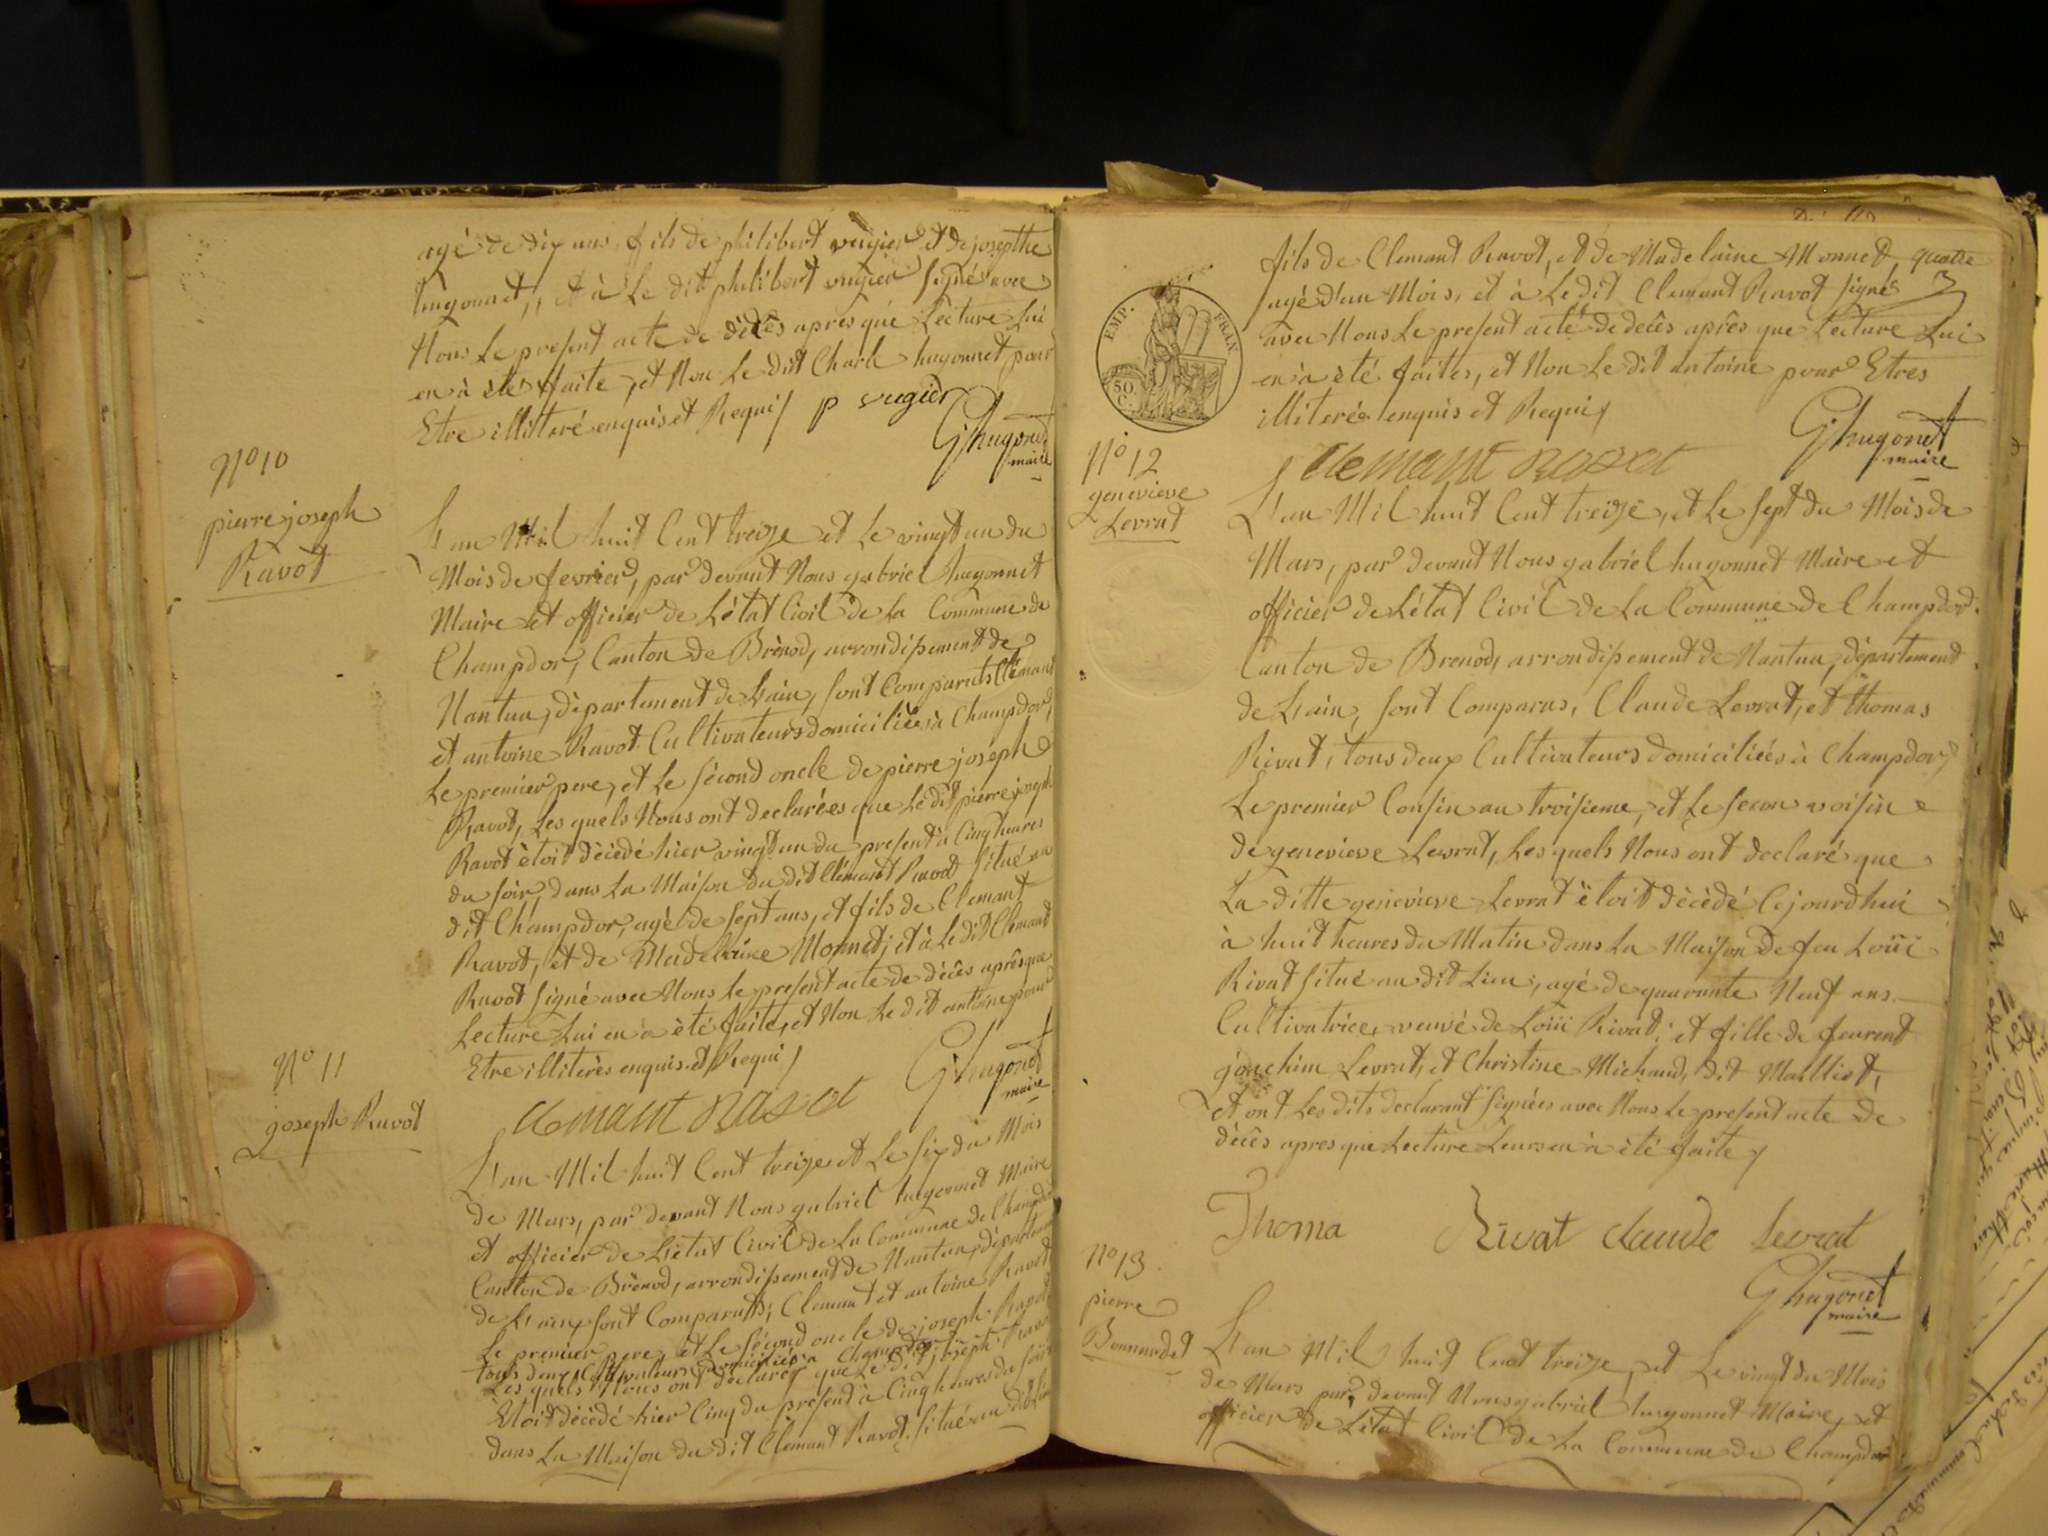 agé de dix ans, fils de philibert vugier et de josepthe
hugonnet, et à Le dit philibert vugier signé avec
Nous Le present acte de décès apres que Lecture Lui
en à été faite, et Non Le dit Charle hugonnet pour
Etre illiteré enquis et Requis p vugier
Ghugonet
maire
N° 10
pierre joseph
Ravot
L'an Mil huit Cent treize et Le vingt un du
Mois de fevrier, par devant Nous gabriel hugonnet
Maire et officier de L'état Civil de La Commune de
Champdor, Canton de Brènod, arrondissement de
Nantua, département de L'ain, sont Comparuts Clémant
et antoine Ravot Cultivateurs domiciliés à Champdor,
Le premier pere, et Le sécond oncle de pierre joséph
Ravot, Les quels Nous ont declarées que Le dit pierre joseph
Ravot ètoit décédé hier vingt un du present à Cinq heures
du soir, dans La Maison du dit Clémant Ravot situé au
dit Champdor, agé de sept ans, et fils de Clemant
Ravot, et de Madelaine Monnet; et à Le dit Clemant
Ravot signé avec Nous Le present acte de décês aprês que
Lecture Lui en à été faite, et Non Le dit antoine pour
Etre illiterès enquis et Requis
Ghugonet
maire
Clemant Ravot
N° 11
joseph Ravot
L'an Mil huit Cent treize et Le six du Mois
de Mars, par devant Nous gabriel hugonnet Maire
et officier de L'état Civil de La Commune de Champdor
Canton de Brènod, arrondissement de Nantua, départment
de L'ain sont Comparutts, Clemant et antoine Ravot
Le premier pere, et Le sécond oncle de joseph Ravot
tous deux Cultivateurs domiciliés à Champdor
Les quels Nous ont déclarés que Le dit joseph Ravot
Etoit décédé hier Cinq du présent à Cinq heures du soir
dans La Maison du dit Clemant Ravot situé au dit Lieu
EMP. FRAN
50 C.
fils de Clemant Ravot, et de Madelaine Monnet, quatre
agé d'un Mois, et à Le dit Clemant Ravot signé
avec Nous Le present acté de decês aprês que Lecture Lui
en à été faites, et Non Le dit antoine pour Etres
illiterés enquis et Requis
Ghugonet
maire
Clemant Ravot
N° 12
genevieve
Levrat
L'an Mil huit Cent treize, et Le sept du Mois de
Mars, par devant Nous gabriel hugonnet Maire et
officier de L'état Civil de La Commune de Champdor.
Canton de Brenod, arrondissement de Nantua, département
de L'ain, sont Comparus, Claude Levrat, et thomas
Rivat, tous deux Cultivateurs domiciliées à Champdor,
Le premier Cousin au troisieme, et Le secon voisin
de genevieve Levrat, Les quels Nous ont declaré que
La ditte genevieve Levrat ëtoit dècèdé Cejourdhui
à huit heures du Matin dans La Maison de feu Loüi
Rivat situé au dit Lieu, agé de quarante Neuf ans
Cultivatrice, veuvé de Loüi Rivat; et fille de feurent
joachim Levrat, et Christine Michaud, dit Malliet,
et ont Les dits declarant signées avec Nous Le present acte de
décês apres que Lecture Leurs en à été faite
Thoma Rivat claude Levrat
Ghugonet
maire
N° 13
pierre
Bonnardet
L'an Mil huit Cent treize, et Le vingt du Mois
de Mars par devant Nous gabriel hugonnet Maire, et
officier de L'état Civil de La Commune de Champdor